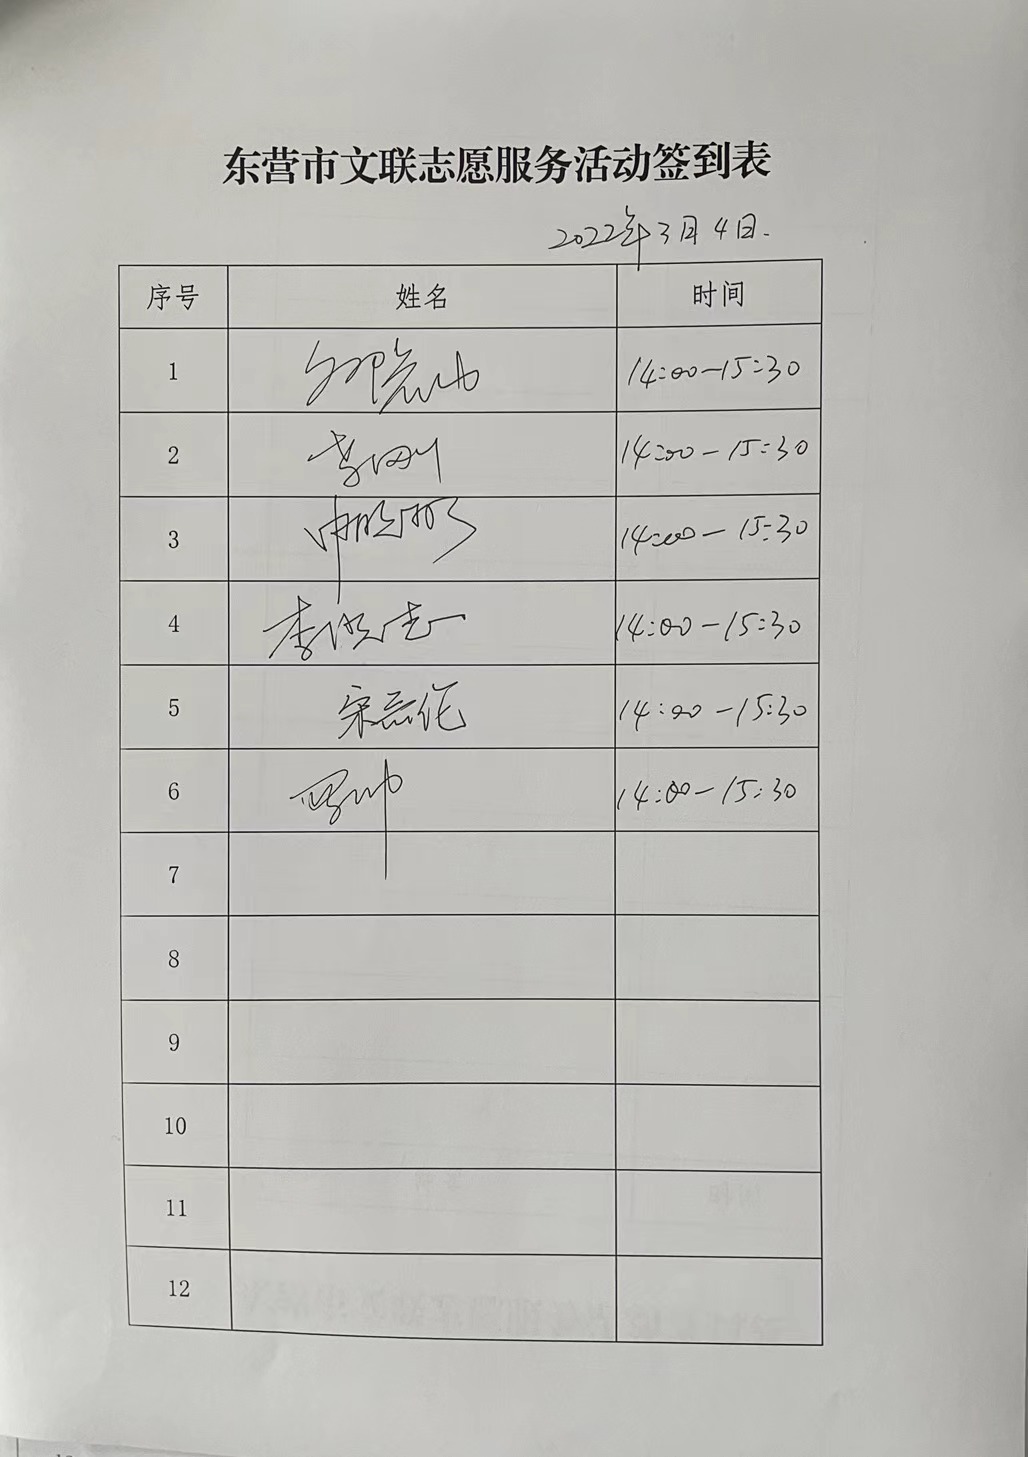 东营市文联志愿服务活动签到表
2022年3月4日.
序号 姓名 时间
1 14:00-15:30
2 李刚 14:00-15:30
3 14:00-15:30
4 14:00-15:30
5 14:00-15:30
6 14:00-15:30
7
8
9
10
11
12